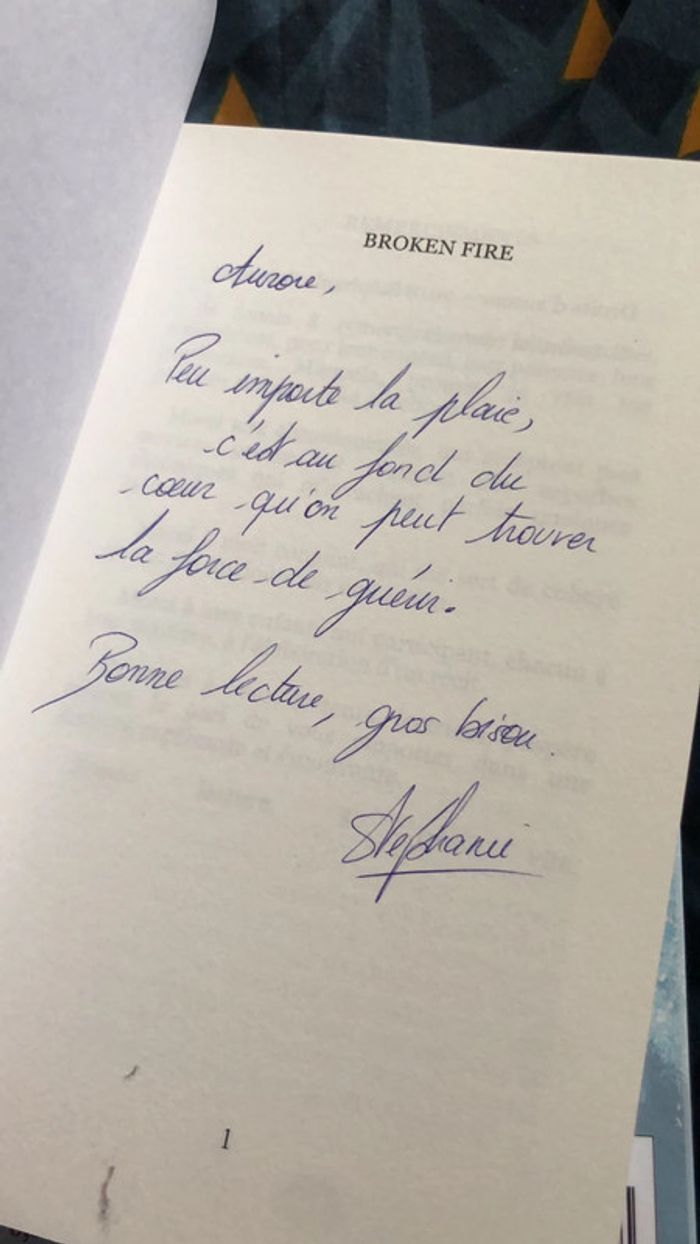 BROKEN FIRE
Aurore,
Peu importe la plaie,
c'est au fond du
coeur qu'on peut trouver
la force de guérir.
Bonne lecture, gros bisou.
Stephanie
1